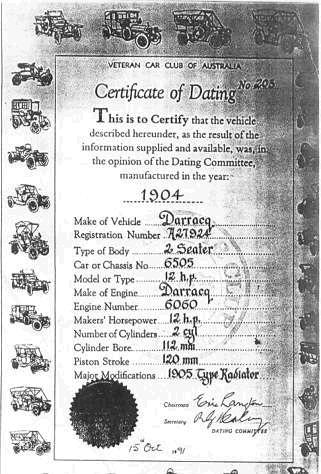 VETERAN CAR CLUB OF AUSTRALIA
Certificate of Dating No 205
This is to Certify that the vehicle
described hereunder, as the result of the
information supplied and available, was, in
the opinion of the Dating Committee,
manufactured in the year:
1904
Make of Vehicle Darracq
Registration Number A27924
Type of Body 2 Seater
Car or Chassis No 6505
Model or Type 12 h.p.
Make of Engine Darracq
Engine Number 6060
Makers' Horsepower 12 h.p.
Number of Cylinders 2 cyl
Cylinder Bore 112 mm
Piston Stroke 120 mm
Major Modifications 1905 Type Radiator
Chairman
Secretary
DATING COMMITTEE
15th Oct 1991